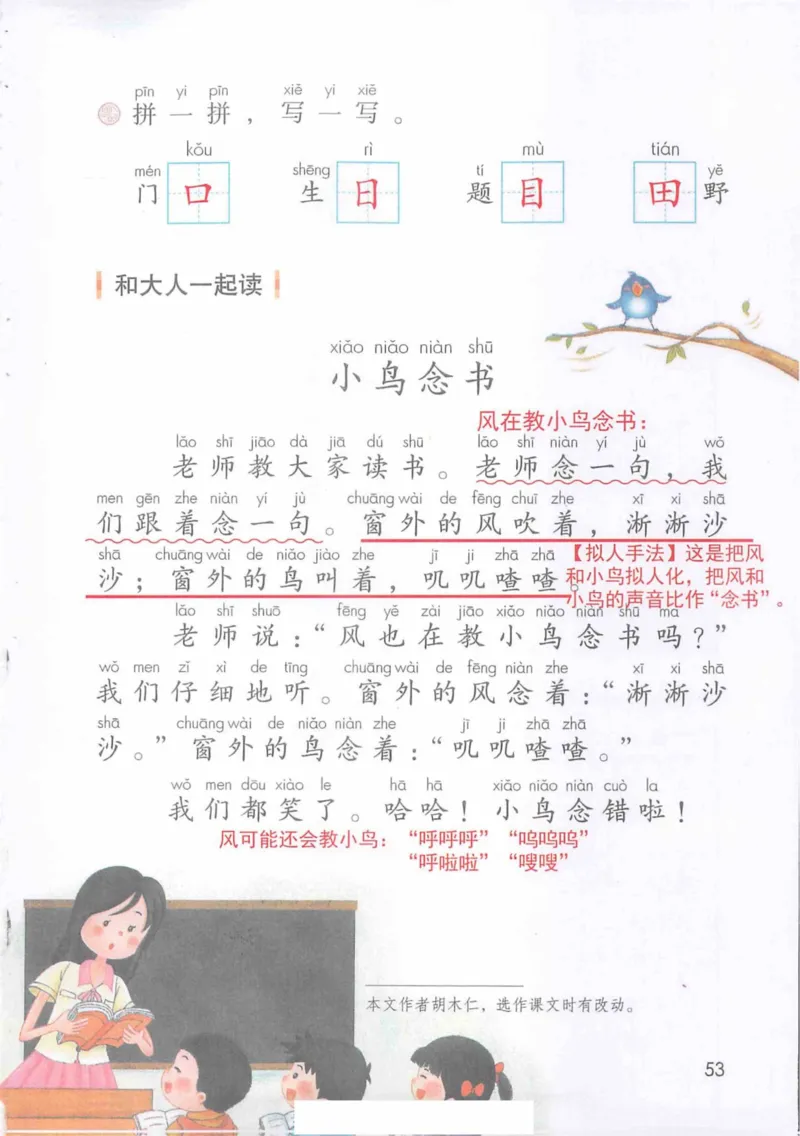 pīn yi pīn xiě yi xiě
拼一拼，写一写。
kǒu rì mù tián
mén shēng tí yě
门口 生日 题目 田野
和大人一起读
xiǎo niǎo niàn shū
小鸟念书
风在教小鸟念书：
lǎo shī jiāo dà jiā dú shū lǎo shī niàn yí jù wǒ
老师教大家读书。老师念一句，我
men gēn zhe niàn yí jù chuāng wài de fēng chuī zhe xī xi shā
们跟着念一句。窗外的风吹着，淅淅沙
shā chuāng wài de niǎo jiào zhe jī ji zhā zhā
沙；窗外的鸟叫着，叽叽喳喳。
【拟人手法】这是把风
和小鸟拟人化，把风和
小鸟的声音比作“念书”。
lǎo shī shuō fēng yě zài jiāo xiǎo niǎo niàn shū ma
老师说：“风也在教小鸟念书吗？”
wǒ men zǐ xì de tīng chuāng wài de fēng niàn zhe xī xi shā
我们仔细地听。窗外的风念着：“淅淅沙
shā chuāng wài de niǎo niàn zhe jī ji zhā zhā
沙。”窗外的鸟念着：“叽叽喳喳。”
wǒ men dōu xiào le hā hā xiǎo niǎo niàn cuò la
我们都笑了。哈哈！小鸟念错啦！
风可能还会教小鸟：“呼呼呼” “呜呜呜”
“呼啦啦” “嗖嗖”
本文作者胡木仁，选作课文时有改动。
53